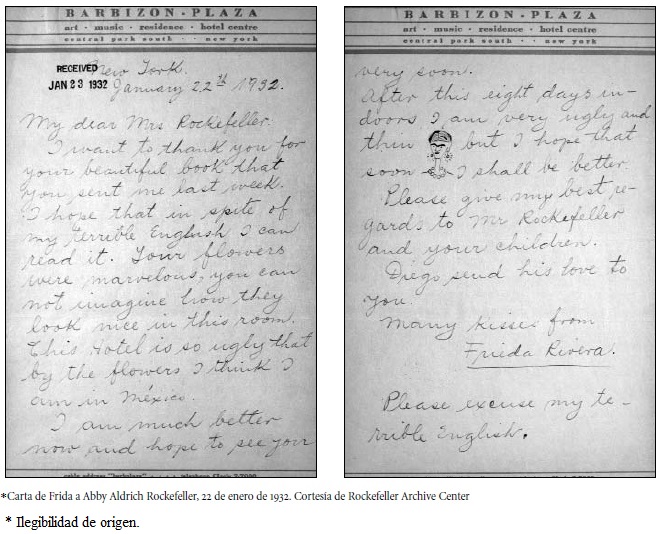 BARBIZON - PLAZA
art · music · residence · hotel centre
central park south · · new york
RECEIVED
JAN 23 1932
New York.
January 22th 1932.
My dear Mrs Rockefeller:
I want to thank you for
your beautiful book that
you sent me last week.
I hope that in spite of
my terrible English I can
read it. Your flowers
were marvelous, you can
not imagine how they
look nice in this room.
This Hotel is so ugly that
by the flowers I think I
am in México.
I am much better
now and hope to see your
BARBIZON - PLAZA
art · music · residence · hotel centre
central park south · · new york
very soon.
After this eight days in-
doors I am very ugly and
thin but I hope that
soon I shall be better.
Please give my best re-
gards to Mr Rockefeller
and your children.
Diego send his love to
you.
Many kisses from
Frieda Rivera.
Please excuse my te-
rrible English.
*Carta de Frida a Abby Aldrich Rockefeller, 22 de enero de 1932. Cortesía de Rockefeller Archive Center
* Ilegibilidad de origen.